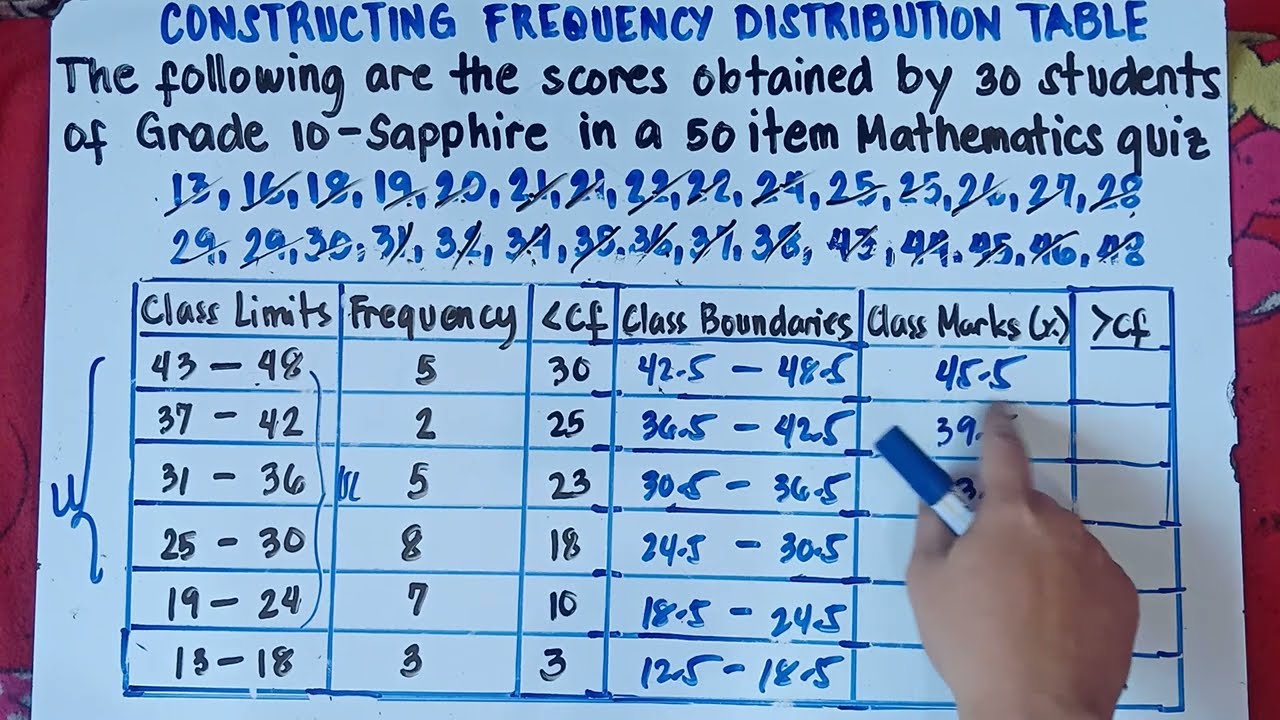 CONSTRUCTING FREQUENCY DISTRIBUTION TABLE
The following are the scores obtained by 30 students
of Grade 10-Sapphire in a 50 item Mathematics quiz
13, 16, 18, 19, 20, 21, 21, 22, 22, 24, 25, 25, 26, 27, 28
29, 29, 30, 31, 32, 34, 35, 36, 37, 38, 43, 44, 45, 46, 48
Class Limits Frequency <Cf Class Boundaries Class Marks (x) >Cf
43 - 48 5 30 42.5 - 48.5 45.5
37 - 42 2 25 36.5 - 42.5 39.
31 - 36 5 23 30.5 - 36.5
25 - 30 8 18 24.5 - 30.5
19 - 24 7 10 18.5 - 24.5
13 - 18 3 3 12.5 - 18.5